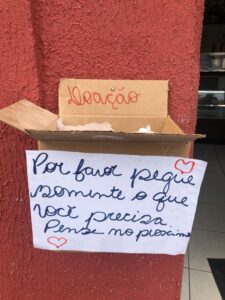 Doação
Por favor pegue
somente o que
você precisa
Pense no próximo